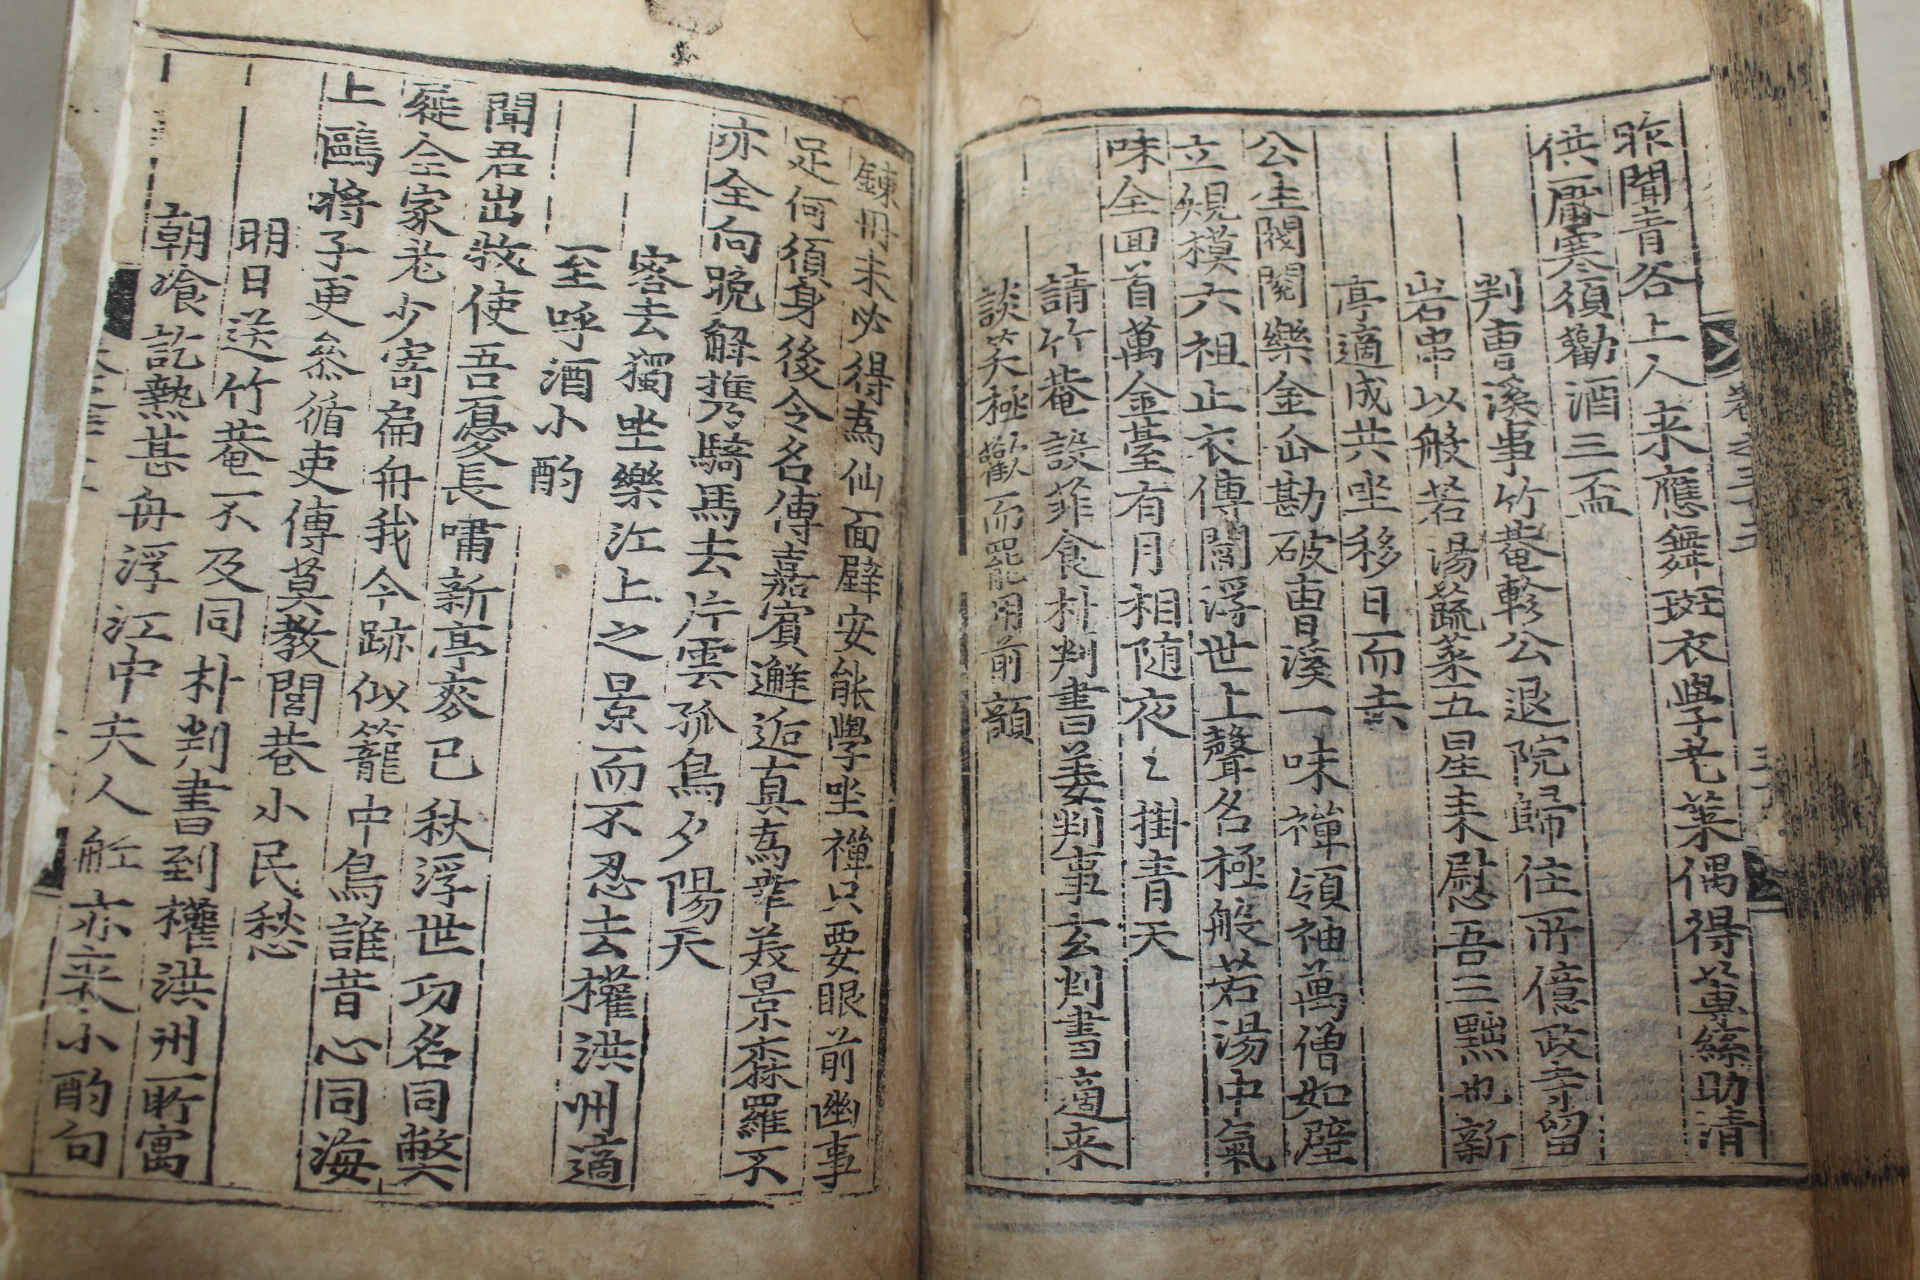 昨聞青谷上人来應舞斑衣學老萊偶得蓴絲助清
供一厨寒須勸酒三盃
判曺溪事竹菴軫公退院歸住所億政寺留
岩串以般若湯蔬菜五星来慰吾三黜也新
亭適成共坐移日而去
公生閥閱樂金仚勘破曺溪一味禪領袖萬僧如壁
立規模六祖止衣傳閻浮世上聲名極般若湯中氣
味全回首萬金臺有月相随夜〻掛青天
請竹菴設菲食朴判書姜判事玄判書適来
談笑極歡而罷用前韻
錬丹未必得爲仙面壁安能學坐禪只要眼前幽事
足何須身後令名傳嘉賔邂逅真爲幸美景森羅不
亦全向晩解携騎馬去片雲孤鳥夕陽天
客去獨坐樂江上之景而不忍去權洪州適
至呼酒小酌
聞君出牧使吾憂長嘯新亭麥已秋浮世功名同弊
屣全家老少寄扁舟我今跡似籠中鳥誰昔心同海
上鷗将子更叅循吏傳莫教閭巷小民愁
明日送竹菴不及同朴判書到權洪州所寓
朝飡訖熱甚舟浮江中夫人舡亦来小酌句